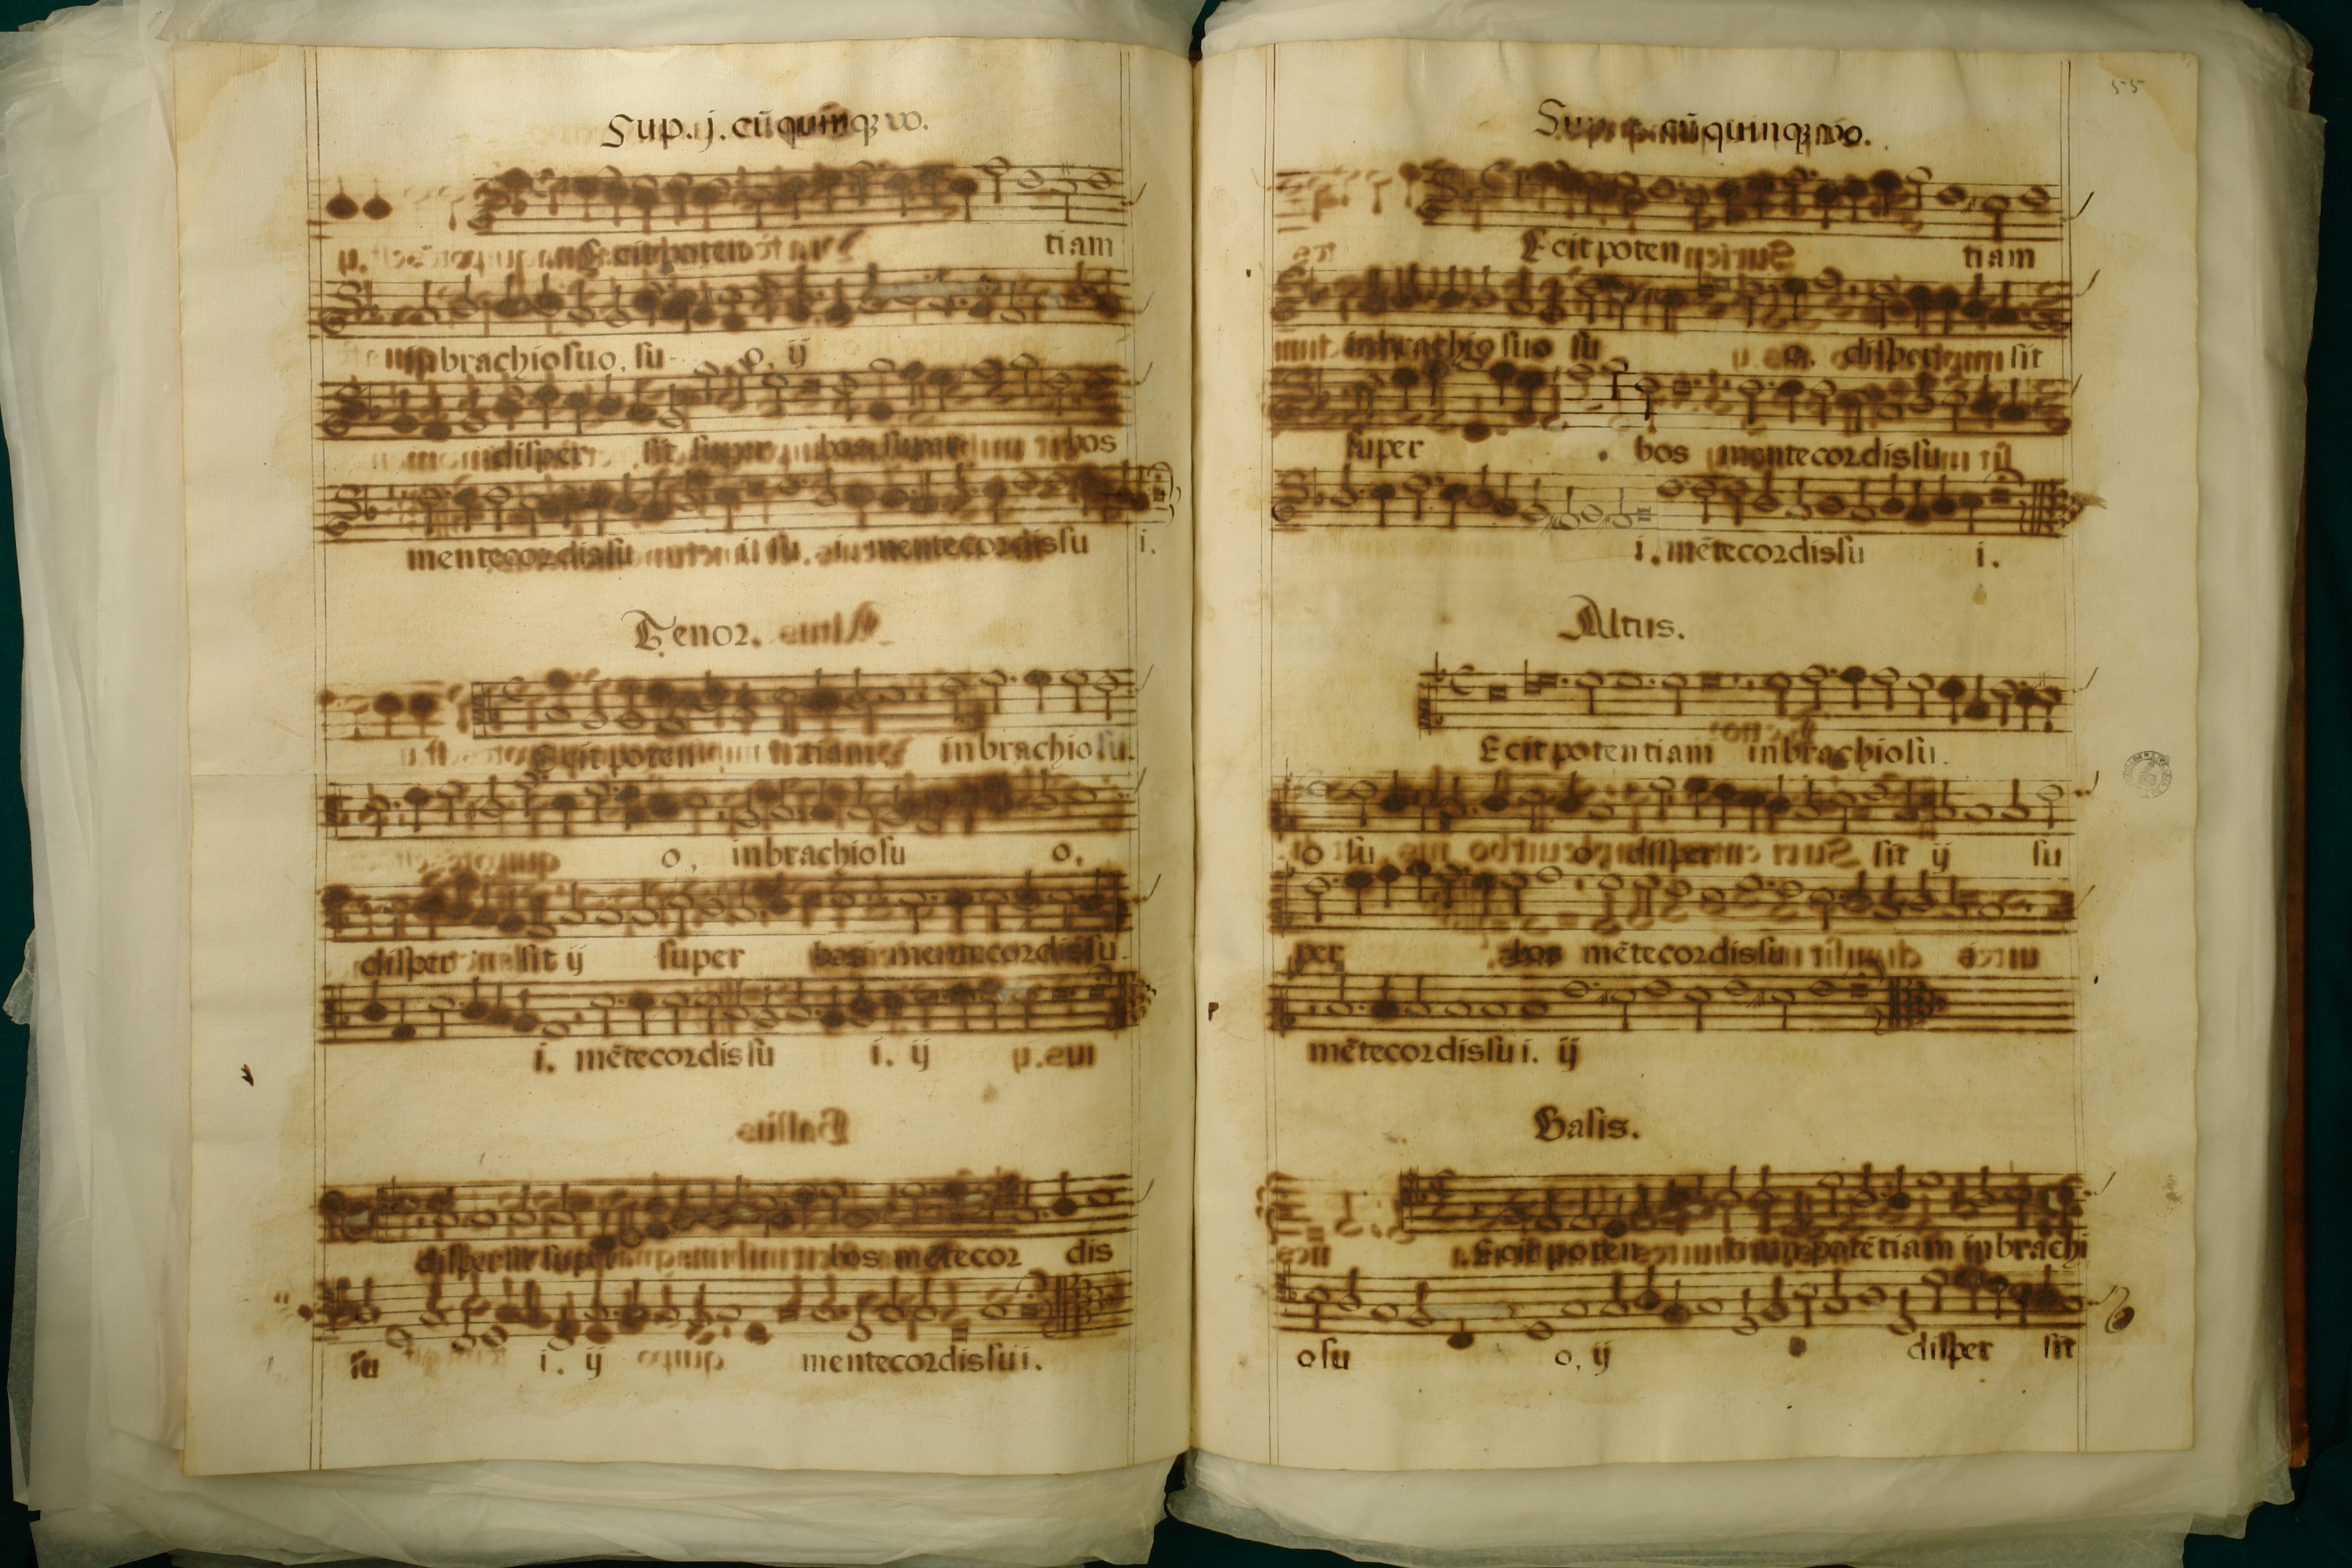 Sup. ij. cũ quinqꝫ vo.
Ecit poten tiam
in brachio suo, su o, ij
disper sit super bos super bos
mente cordis su i su i mente cordis su i.
Tenor.
Ecit poten tiam in brachio su.
o, in brachio su o,
disper sit ij super bos mente cordis su.
i. mẽte cordis su i. ij
disper sit super bos mẽte cor dis
su i. ij mente cordis sui.
55
cũ quinqꝫ vo.
Ecit poten tiam
in brachio suo su o, disper sit
super bos mente cordis su
i. mẽte cordis su i.
Altus.
Ecit potentiam in brachio su.
o su o, disper sit ij su
per bos mẽte cordis su
mẽte cordis su i. ij
Basis.
Ecit poten tiam potẽtiam in brachi
o su o, ij disper sit